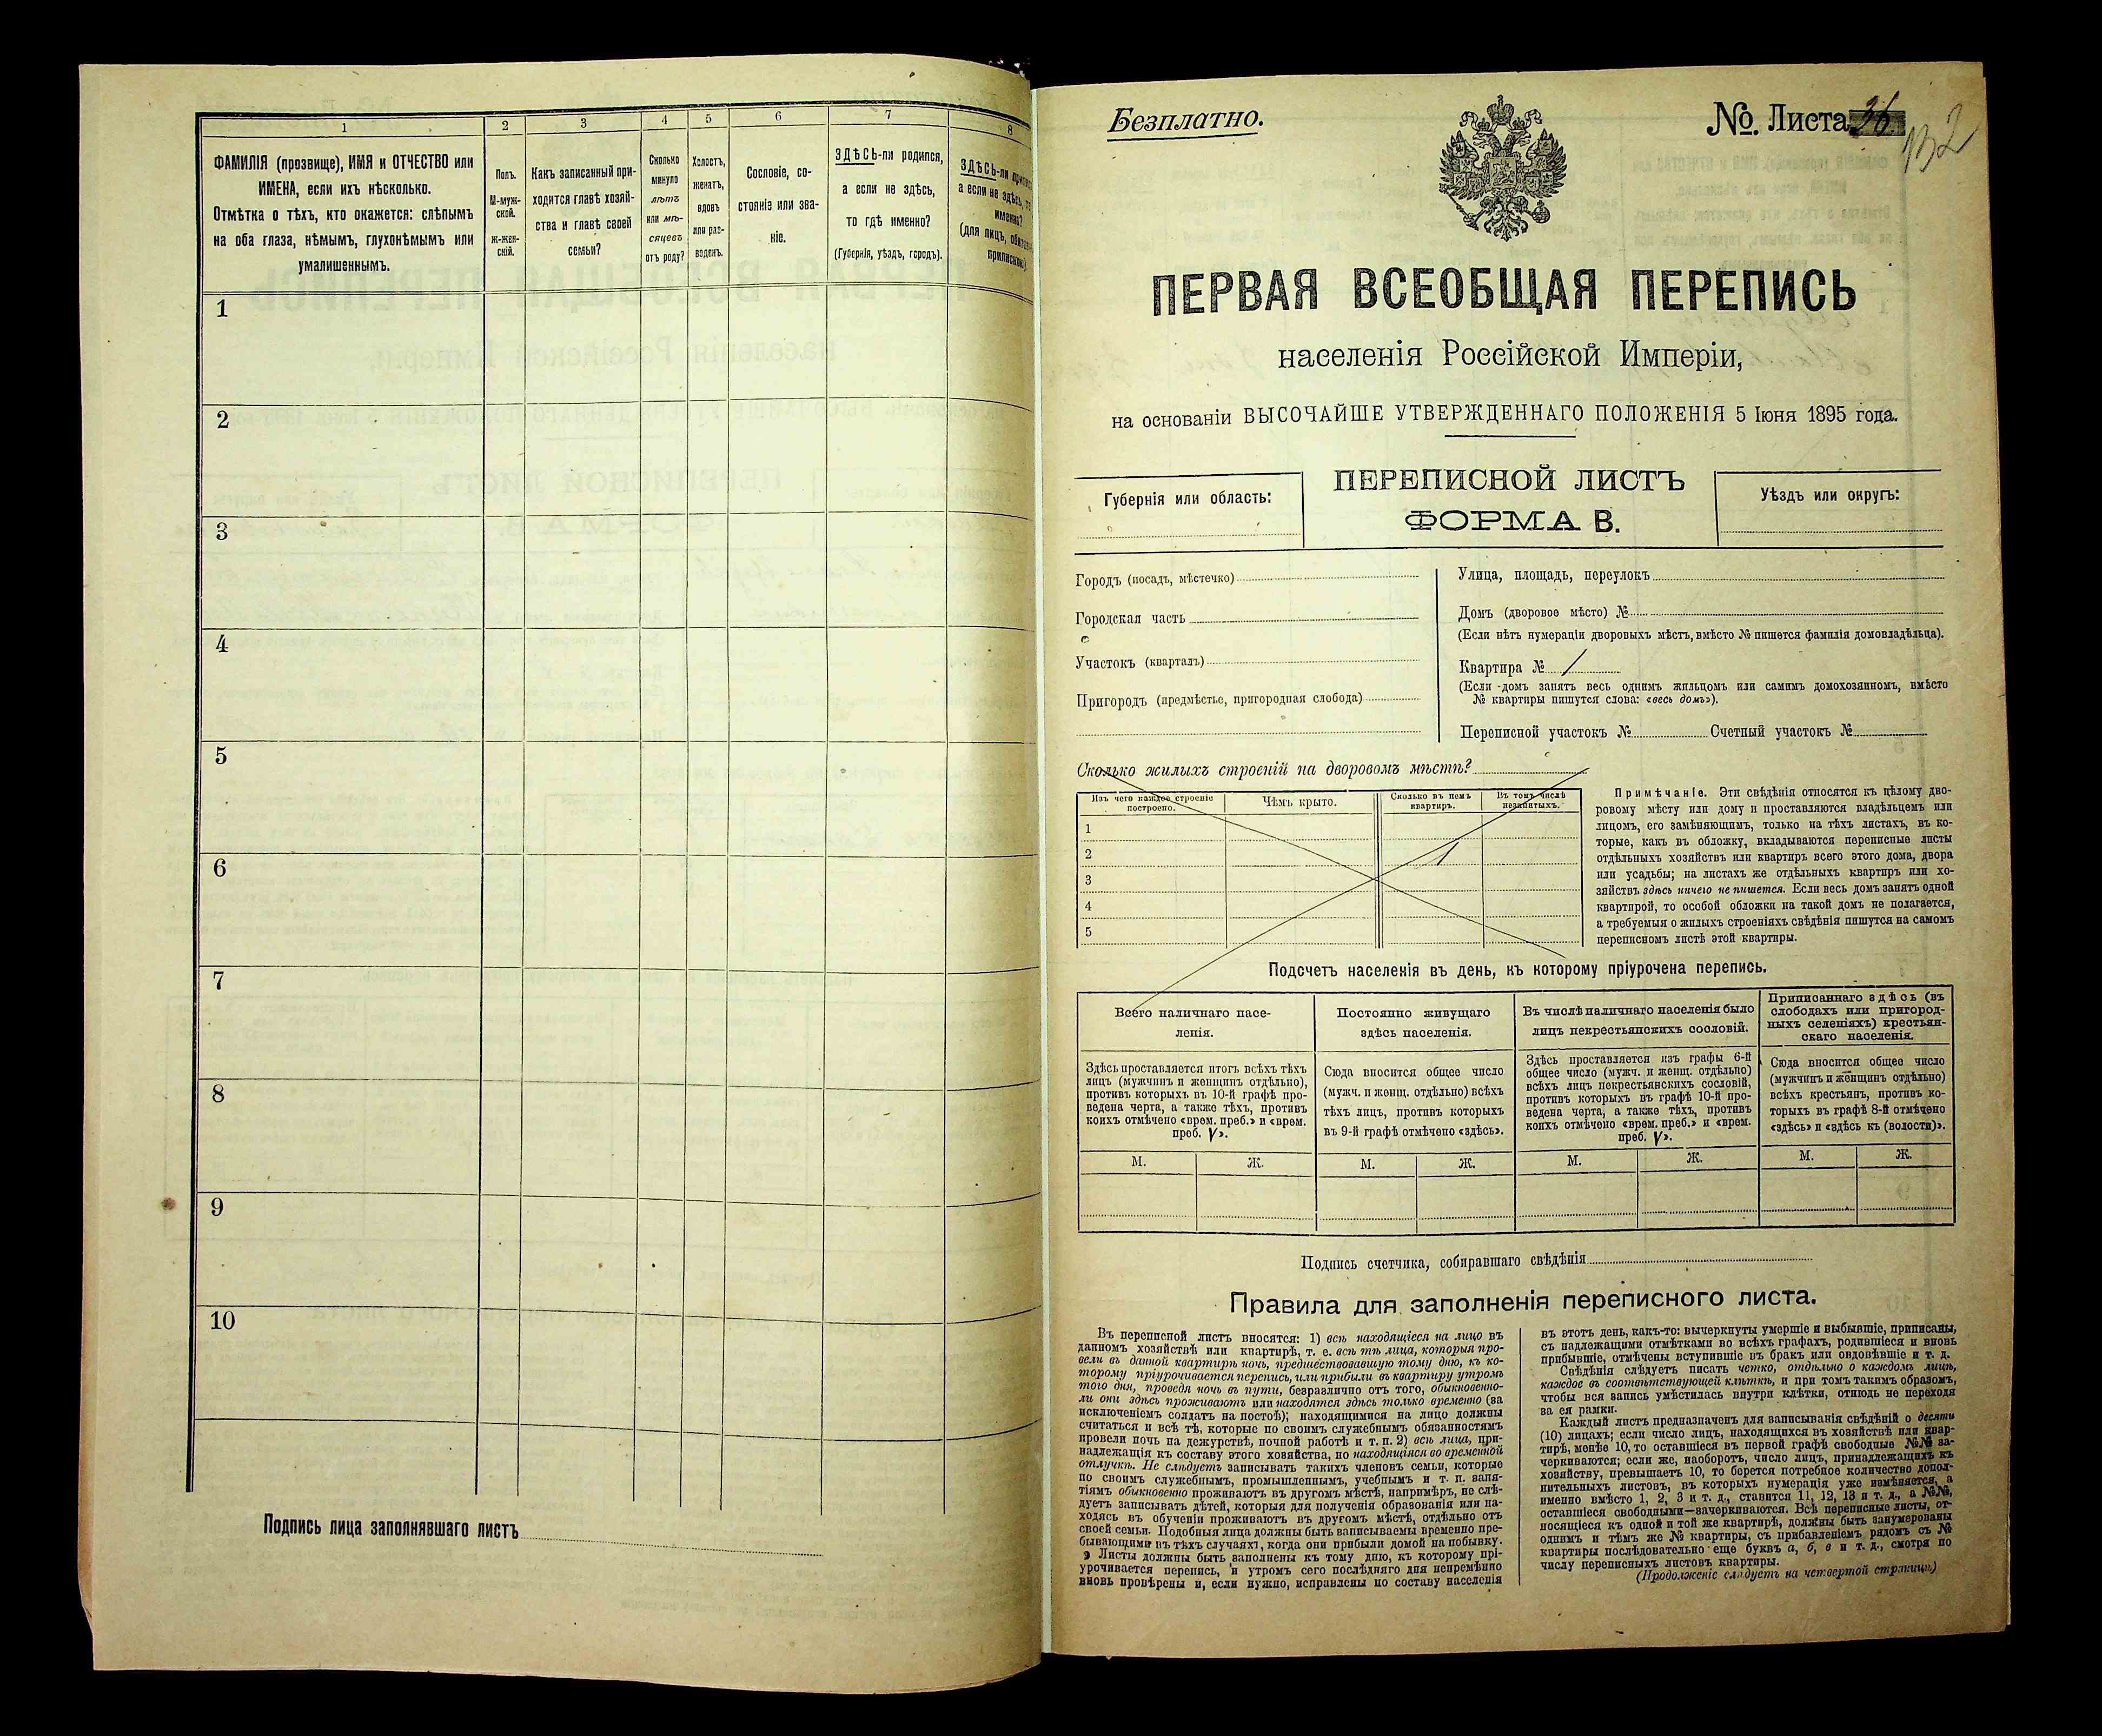 1
2
3
4
5
6
7
8
ФАМИЛІЯ (прозвище), ИМЯ и ОТЧЕСТВО или
ИМЕНА, если ихъ нѣсколько.
Отмѣтка о тѣхъ, кто окажется: слѣпымъ
на оба глаза, нѣмымъ, глухонѣмымъ или
умалишеннымъ.
Полъ.
М-муж-
ской.
ж-жен-
скій.
Какъ записанный при-
ходится главѣ хозяй-
ства и главѣ своей
семьи?
Сколько
минуло
лѣтъ
или мѣ-
сяцевъ
отъ роду?
Холостъ,
женатъ,
вдовъ
или раз-
веденъ.
Сословіе, со-
стояніе или зва-
ніе.
ЗДѢСЬ-ли родился,
а если не здѣсь,
то гдѣ именно?
(Губернія, уѣздъ, городъ).
ЗДѢСЬ-ли
а если не здѣсь,
именно?
(для лицъ,
1
2
3
4
5
6
7
8
9
10
Подпись лица заполнявшаго листъ
Безплатно.
№. Листа 36
132
ПЕРВАЯ ВСЕОБЩАЯ ПЕРЕПИСЬ
населенія Россійской Имперіи,
на основаніи ВЫСОЧАЙШЕ УТВЕРЖДЕННАГО ПОЛОЖЕНІЯ 5 Іюня 1895 года.
Губернія или область:
ПЕРЕПИСНОЙ ЛИСТЪ
ФОРМА В.
Уѣздъ или округъ:
Городъ (посадъ, мѣстечко)
Городская часть
Участокъ (кварталъ)
Пригородъ (предмѣстье, пригородная слобода)
Улица, площадь, переулокъ
Домъ (дворовое мѣсто) №
(Если нѣтъ нумераціи дворовыхъ мѣстъ, вмѣсто № пишется фамилія домовладѣльца).
Квартира № 1
(Если домъ занятъ весь однимъ жильцомъ или самимъ домохозяиномъ, вмѣсто
№ квартиры пишутся слова: «весь домъ»).
Переписной участокъ № Счетный участокъ №
Сколько жилыхъ строеній на дворовомъ мѣстѣ?
Изъ чего каждое строеніе
построено.
Чѣмъ крыто.
Сколько въ немъ
квартиръ.
Въ томъ числѣ
незанятыхъ.
1
2
3
4
5
1
Примѣчаніе. Эти свѣдѣнія относятся къ цѣлому дво-
ровому мѣсту или дому и проставляются владѣльцемъ или
лицомъ, его замѣняющимъ, только на тѣхъ листахъ, въ ко-
торые, какъ въ обложку, вкладываются переписные листы
отдѣльныхъ хозяйствъ или квартиръ всего этого дома, двора
или усадьбы; на листахъ же отдѣльныхъ квартиръ или хо-
зяйствъ здѣсь ничего не пишется. Если весь домъ занятъ одной
квартирой, то особой обложки на такой домъ не полагается,
а требуемыя о жилыхъ строеніяхъ свѣдѣнія пишутся на самомъ
переписномъ листѣ этой квартиры.
Подсчетъ населенія въ день, къ которому пріурочена перепись.
Всего наличнаго насе-
ленія.
Постоянно живущаго
здѣсь населенія.
Въ числѣ наличнаго населенія было
лицъ некрестьянскихъ сословій.
Приписаннаго здѣсь (въ
слободахъ или пригород-
ныхъ селеніяхъ) крестьян-
скаго населенія.
Здѣсь проставляется итогъ всѣхъ тѣхъ
лицъ (мужчинъ и женщинъ отдѣльно),
противъ которыхъ въ 10-й графѣ про-
ведена черта, а также тѣхъ, противъ
коихъ отмѣчено «врем. преб.» и «врем.
преб. V».
Сюда вносится общее число
(мужч. и женщ. отдѣльно) всѣхъ
тѣхъ лицъ, противъ которыхъ
въ 9-й графѣ отмѣчено «здѣсь».
Здѣсь проставляется изъ графы 6-й
общее число (мужч. и женщ. отдѣльно)
всѣхъ лицъ некрестьянскихъ сословій,
противъ которыхъ въ графѣ 10-й про-
ведена черта, а также тѣхъ, противъ
коихъ отмѣчено «врем. преб.» и «врем.
преб. V».
Сюда вносится общее число
(мужчинъ и женщинъ отдѣльно)
всѣхъ крестьянъ, противъ ко-
торыхъ въ графѣ 8-й отмѣчено
«здѣсь» и «здѣсь къ (волости)».
М. Ж. М. Ж. М. Ж. М. Ж.
Подпись счетчика, собиравшаго свѣдѣнія
Правила для заполненія переписного листа.
Въ переписной листъ вносятся: 1) всѣ находящіеся на лицо въ
данномъ хозяйствѣ или квартирѣ, т. е. всѣ тѣ лица, которыя про-
вели въ данной квартирѣ ночь, предшествовавшую тому дню, къ ко-
торому пріурочивается перепись, или прибыли въ квартиру утромъ
того дня, проведя ночь въ пути, безразлично отъ того, обыкновенно-
ли они здѣсь проживаютъ или находятся здѣсь только временно (за
исключеніемъ солдатъ на постоѣ); находящимися на лицо должны
считаться и всѣ тѣ, которые по своимъ служебнымъ обязанностямъ
провели ночь на дежурствѣ, ночной работѣ и т. п. 2) всѣ лица, при-
надлежащія къ составу этого хозяйства, но находящіяся во временной
отлучкѣ. Не слѣдуетъ записывать такихъ членовъ семьи, которые
по своимъ служебнымъ, промышленнымъ, учебнымъ и т. п. заня-
тіямъ обыкновенно проживаютъ въ другомъ мѣстѣ, напримѣръ, не слѣ-
дуетъ записывать дѣтей, которыя для полученія образованія или на-
ходясь въ обученіи проживаютъ въ другомъ мѣстѣ, отдѣльно отъ
своей семьи. Подобныя лица должны быть записываемы временно пре-
бывающими въ тѣхъ случаяхъ, когда они прибыли домой на побывку.
Листы должны быть заполнены къ тому дню, къ которому прі-
урочивается перепись, и утромъ сего послѣдняго дня непремѣнно
вновь провѣрены и, если нужно, исправлены по составу населенія
въ этотъ день, какъ-то: вычеркнуты умершіе и выбывшіе, приписаны,
съ надлежащими отмѣтками во всѣхъ графахъ, родившіеся и вновь
прибывшіе, отмѣчены вступившіе въ бракъ или овдовѣвшіе и т. д.
Свѣдѣнія слѣдуетъ писать четко, отдѣльно о каждомъ лицѣ,
каждое въ соотвѣтствующей клѣткѣ, и при томъ такимъ образомъ,
чтобы вся запись умѣстилась внутри клѣтки, отнюдь не переходя
за ея рамки.
Каждый листъ предназначенъ для записыванія свѣдѣній о десяти
(10) лицахъ; если число лицъ, находящихся въ хозяйствѣ или квар-
тирѣ, менѣе 10, то оставшіеся въ первой графѣ свободные №№ за-
черкиваются; если же, наоборотъ, число лицъ, принадлежащихъ къ
хозяйству, превышаетъ 10, то берется потребное количество допол-
нительныхъ листовъ, въ которыхъ нумерація уже измѣняется, а
именно вмѣсто 1, 2, 3 и т. д., ставится 11, 12, 13 и т. д., а №№,
оставшіеся свободными—зачеркиваются. Всѣ переписные листы, от-
носящіеся къ одной и той же квартирѣ, должны быть занумерованы
однимъ и тѣмъ же № квартиры, съ прибавленіемъ рядомъ съ №
квартиры послѣдовательно еще буквъ а, б, в и т. д., смотря по
числу переписныхъ листовъ квартиры.
(Продолженіе слѣдуетъ на четвертой страницѣ)